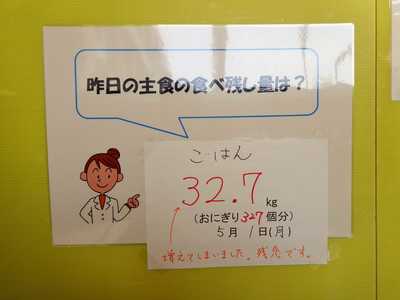 昨日の主食の食べ残し量は？
ごはん
32.7 kg
(おにぎり327個分)
5月 1日(月)
増えてしまいました。残念です。